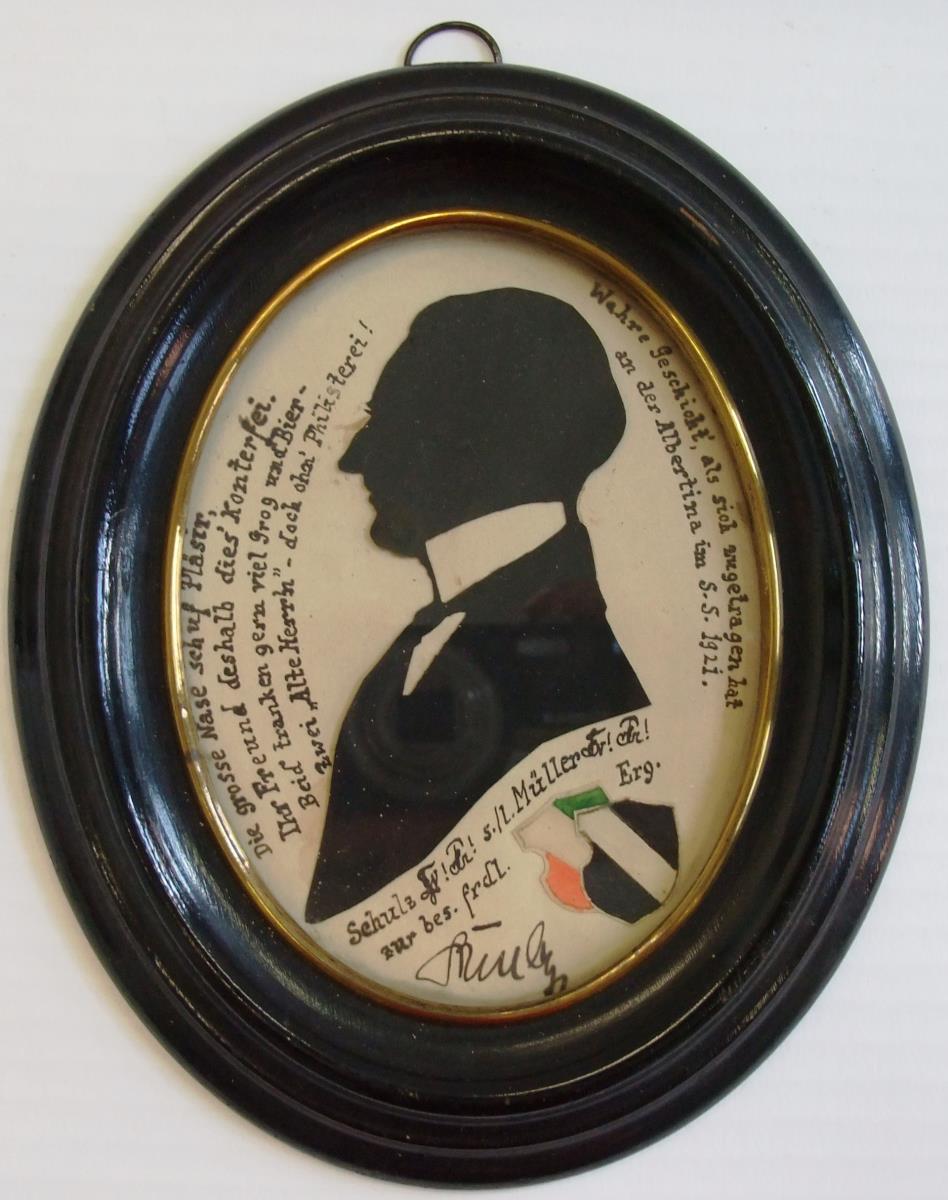 Die grosse Nase schuf Pläsir,
Ihr Freund deshalb dies' Konterfei.
Beid' tranken gern viel Grog und Bier-
zwei „Alte Herrn" - doch ohn' Philisterei!
Wahre Geschicht', als sich zugetragen hat
an der Albertina im S.S. 1921.
Schulz ! ! s./l. Müller ! !
zur bes. frdl. Erg.